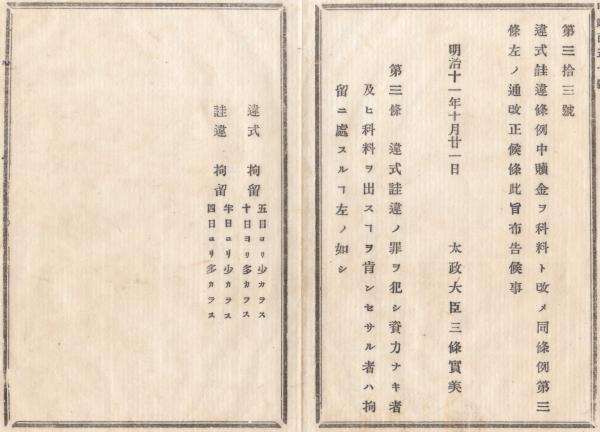 第三拾三號
違式詿違條例中贖金ヲ科料ト改メ同條例第三
條左ノ通改正候條此旨布告候事
明治十一年十月廿一日　太政大臣三條實美
第三條　違式詿違ノ罪ヲ犯シ資力ナキ者
及ヒ科料ヲ出スヿヲ肯ンセサル者ハ拘
留ニ處スルヿ左ノ如シ
違式　拘留　五日ヨリ少カラス
十日ヨリ多カラス
詿違　拘留　半日ヨリ少カラス
四日ヨリ多カラス